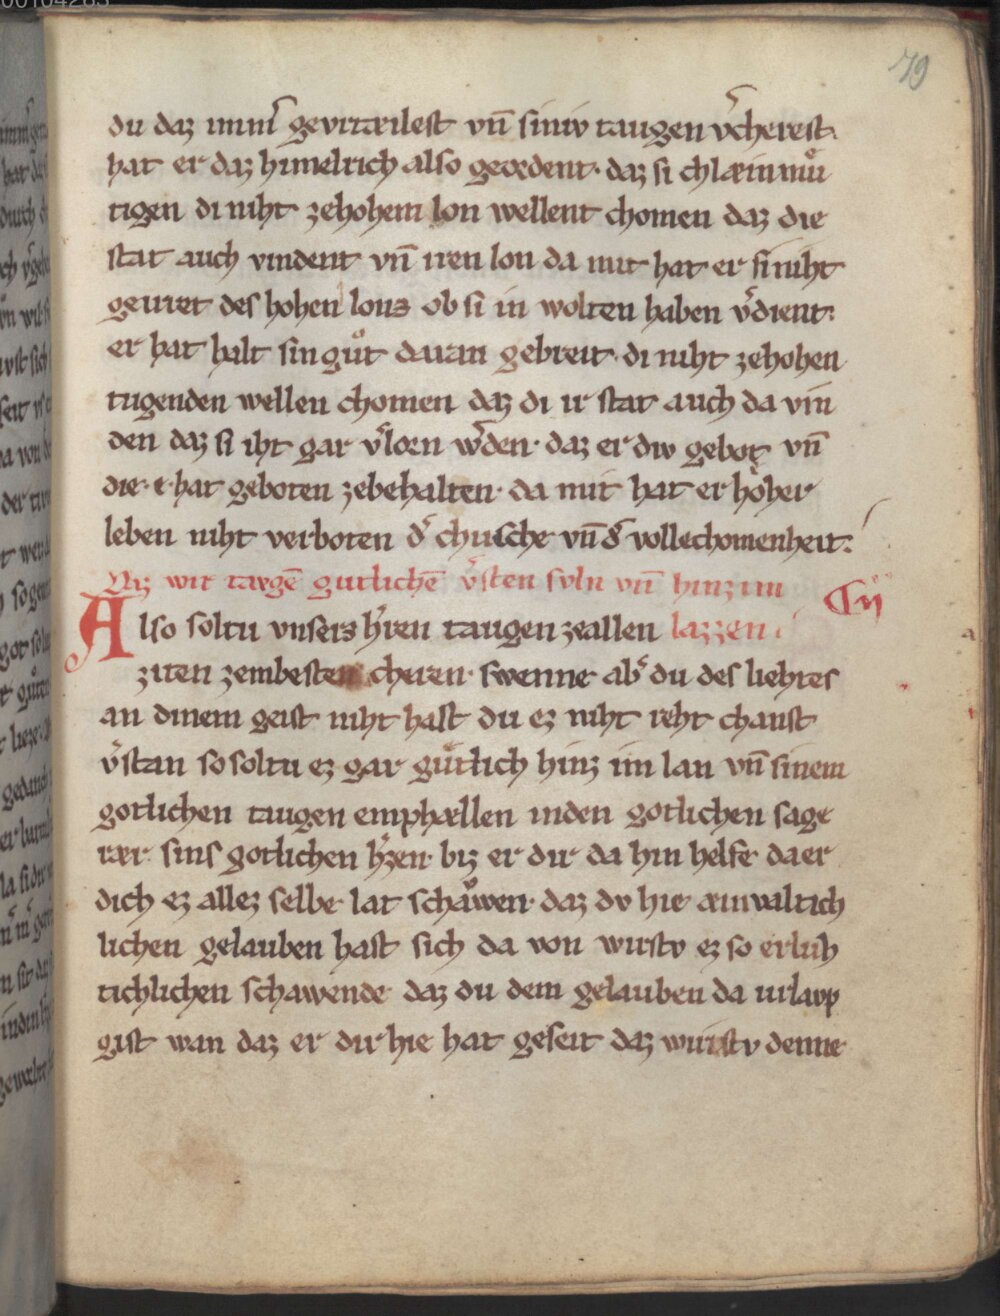 79
du daz imm̄ gevrtæilest vn̄ siniv taugen v̄cherest.
hat er daz himelrich also geordent. daz si chlæinmuͦ
tigen di niht zehohem lon wellent chomen daz die
stat auch vindent vn̄ iren lon da mit hat er si niht
geuiret des hohen lons ob si in wolten haben v̄dient.
er hat halt sin guͦt daran gebreit. di niht zehohen
tugenden wellen chomen daz di ir stat auch da vin
den daz si iht gar v̄lorn w̄den. daz er div gebot vn̄
die .e. hat geboten zebehalten. da mit hat er hoher
leben niht verboten d̄ chusche vn̄ d̄ vollechomenheit.
wir tægē gutlichē v̄sten svln vn̄ hinz im
Also soltu vnsers h̄ren taugen zeallen lazzen
ziten zembesten cheren. swenne ab̄ du des liehtes
an dinem geist niht hast du ez niht reht chanst
v̄stan so soltu ez gar guͦtlich hinz im lan vn̄ sinem
gotlichen taugen emphællen in den gotlichen sage
rær sins gotlichen h̄zen. biz er dir da hin helfe da er
dich ez allez selbe lat schaͮwen. daz dv hie æinvaltich
lichen gelauben hast sich da von wirstv ez so erluh
tichlichen schawende daz du dem gelauben da urlavp
gist wan daz er dir hie hat geseit daz wirstv denne